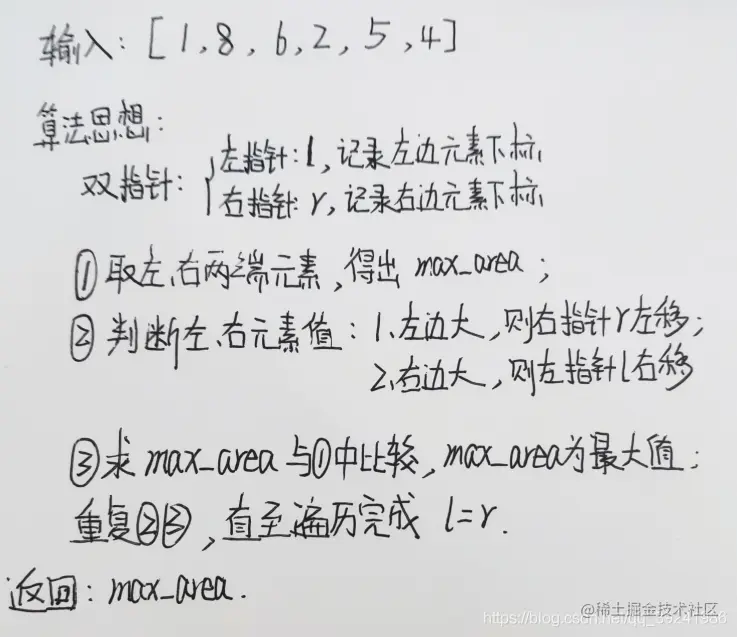 输入: [1,8,6,2,5,4]
算法思想:
双指针: { 左指针: l, 记录左边元素下标
右指针: r, 记录右边元素下标
① 取左、右两端元素, 得出 max_area;
② 判断左、右元素值: 1、左边大, 则右指针r左移;
2、右边大, 则左指针l右移
③ 求 max_area 与①中比较, max_area为最大值;
重复②③, 直至遍历完成 l=r.
返回: max_area.
@稀土掘金技术社区
https://blog.csdn.net/qq_39241986